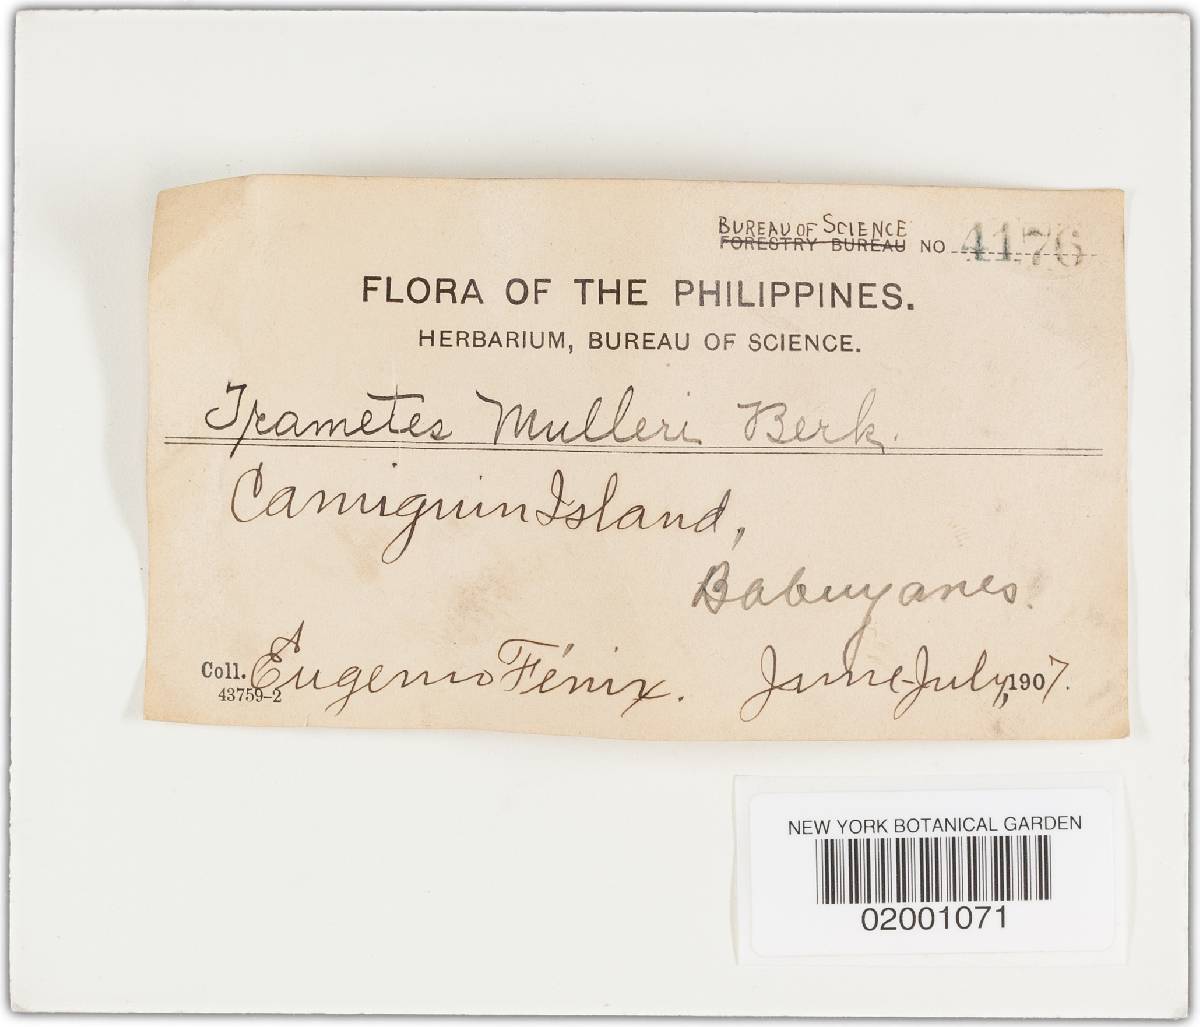 BUREAU OF SCIENCE
FORESTRY BUREAU NO 4176
FLORA OF THE PHILIPPINES.
HERBARIUM, BUREAU OF SCIENCE.
Trametes Mulleri Berk.
Camiguin Island,
Babuyanes.
Coll. Eugenio Fénix. June-July, 1907.
43759-2
NEW YORK BOTANICAL GARDEN
02001071